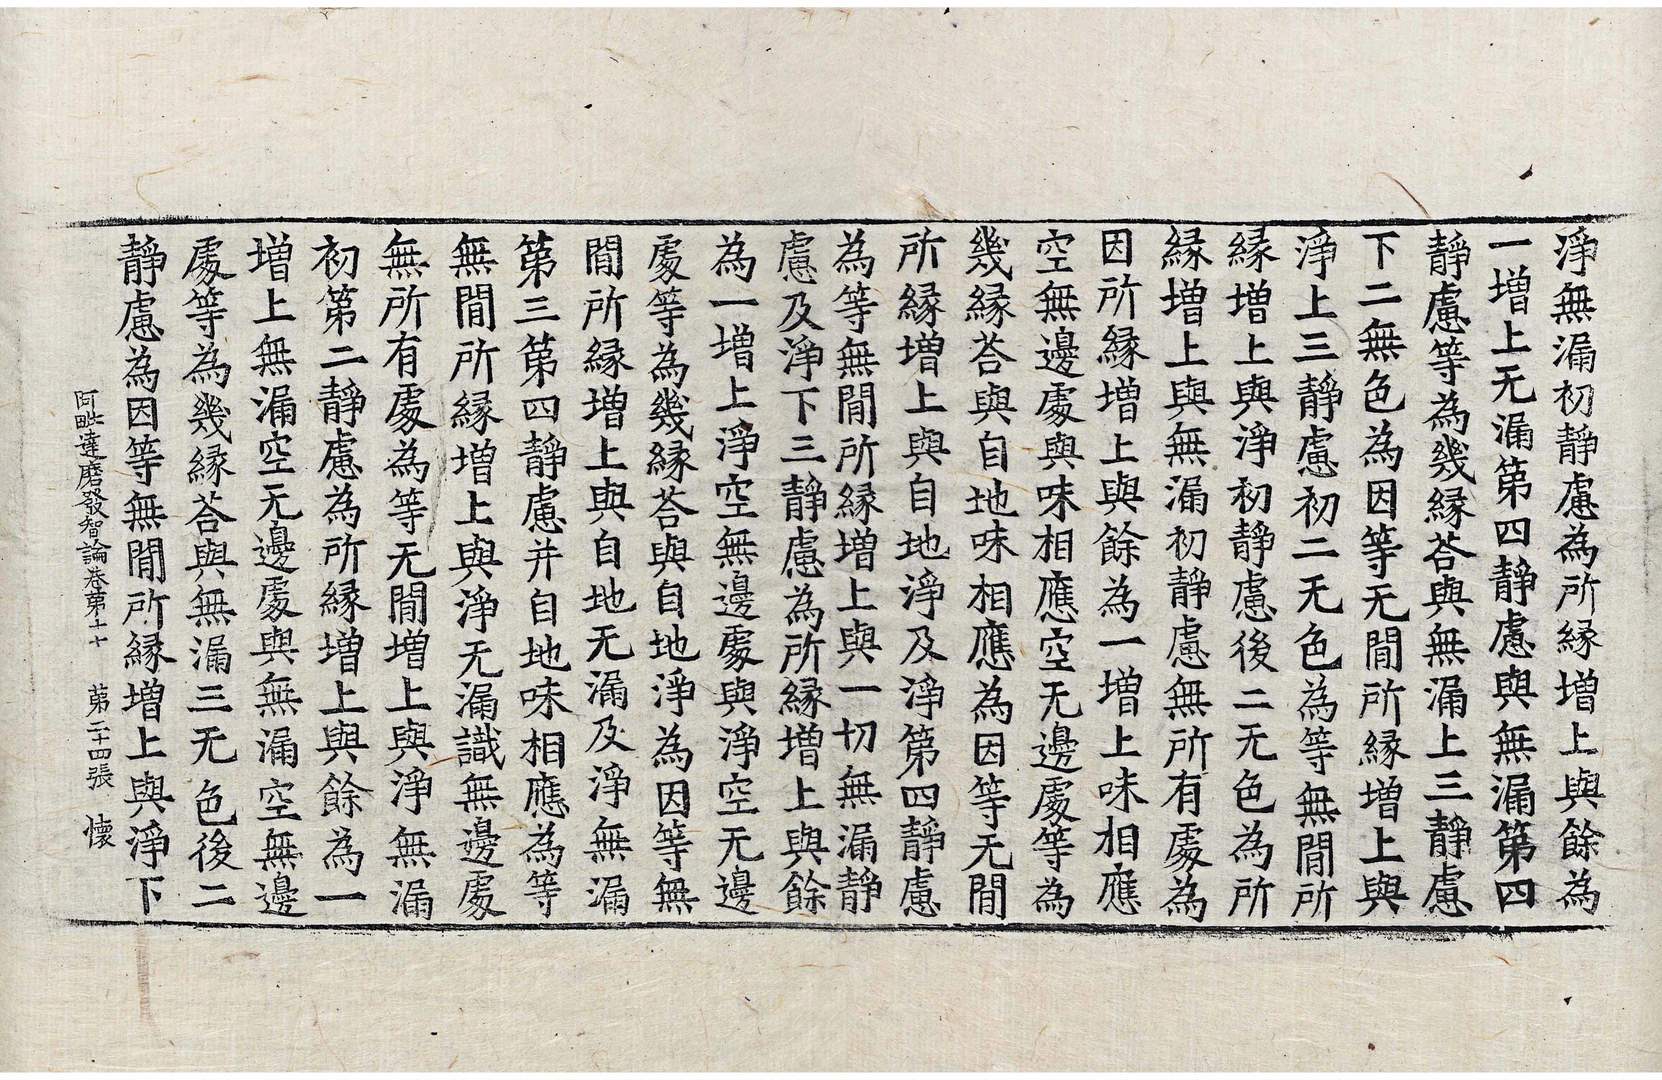 淨無漏初靜慮為所縁增上與餘為
一增上无漏第四靜慮與無漏第四
靜慮等為幾縁荅與無漏上三靜慮
下二無色為因等无閒所縁增上與
淨上三靜慮初二无色為等無閒所
縁增上與淨初靜慮後二无色為所
縁增上與無漏初靜慮無所有處為
因所縁增上與餘為一增上味相應
空無邊處與味相應空无邊處等為
幾縁荅與自地味相應為因等无閒
所縁增上與自地淨及淨第四靜慮
為等無閒所縁增上與一切無漏靜
慮及淨下三靜慮為所縁增上與餘
為一增上淨空無邊處與淨空无邊
處等為幾縁荅與自地淨為因等無
閒所縁增上與自地无漏及淨無漏
第三第四靜慮并自地味相應為等
無閒所縁增上與淨无漏識無邊處
無所有處為等无閒增上與淨無漏
初第二靜慮為所縁增上與餘為一
增上無漏空无邊處與無漏空無邊
處等為幾縁荅與無漏三无色後二
靜慮為因等無閒所縁增上與淨下
阿毗達磨發智論卷第十七 第二十四張 懷